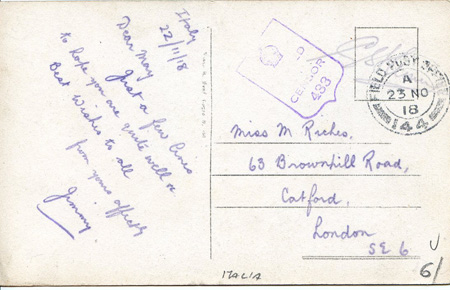 Italy
22/11/18
Dear May
Just a few lines
to hope you are quite well &
Best Wishes to all
from yours affectly
Jimmy
CENSOR
483
FIELD POST OFFICE
A
23 NO
18
144
Miss M Riches.
63 Brownhill Road,
Catford,
London
SE 6
ITALIA
6/